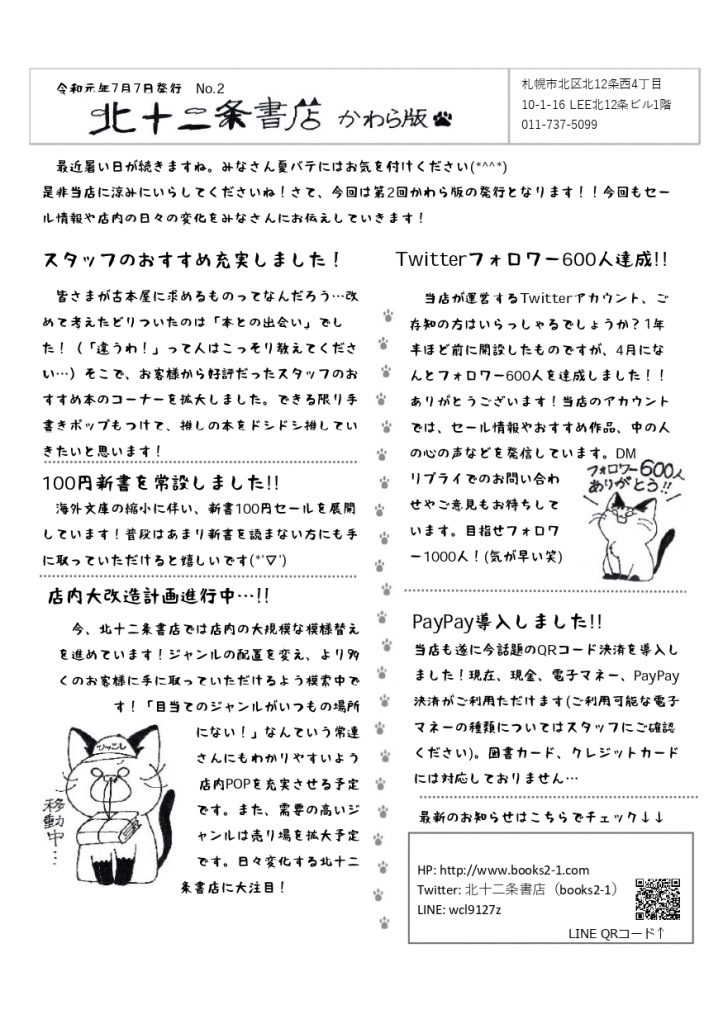 令和元年7月7日発行 No.2
北十二条書店 かわら版
札幌市北区北12条西4丁目
10-1-16 LEE北12条ビル1階
011-737-5099
最近暑い日が続きますね。みなさん夏バテにはお気を付けください(*^^*)
是非当店に涼みにいらしてくださいね！さて、今回は第2回かわら版の発行となります！！今回もセー
ル情報や店内の日々の変化をみなさんにお伝えしていきます！
スタッフのおすすめ充実しました！
皆さまが古本屋に求めるものってなんだろう…改
めて考えたどりついたのは「本との出会い」でし
た！（「違うわ！」って人はこっそり教えてくださ
い…）そこで、お客様から好評だったスタッフのお
すすめ本のコーナーを拡大しました。できる限り手
書きポップもつけて、推しの本をドシドシ推してい
きたいと思います！
100円新書を常設しました!!
海外文庫の縮小に伴い、新書100円セールを展開
しています！普段はあまり新書を読まない方にも手
に取っていただけると嬉しいです(*'∇')
店内大改造計画進行中…!!
今、北十二条書店では店内の大規模な模様替え
を進めています！ジャンルの配置を変え、より多
くのお客様に手に取っていただけるよう模索中で
す！「目当てのジャンルがいつもの場所
にない！」なんていう常連
さんにもわかりやすいよう
店内POPを充実させる予定
です。また、需要の高いジ
ャンルは売り場を拡大予定
です。日々変化する北十二
条書店に大注目！
ひっこし
移動中…
Twitterフォロワー600人達成!!
当店が運営するTwitterアカウント、ご
存知の方はいらっしゃるでしょうか？1年
半ほど前に開設したものですが、4月にな
んとフォロワー600人を達成しました！！
ありがとうございます！当店のアカウント
では、セール情報やおすすめ作品、中の人
の心の声などを発信しています。DM
リプライでのお問い合わ
せやご意見もお待ちして
います。目指せフォロワ
ー1000人！(気が早い笑)
フォロワー600人
ありがとう!!
PayPay導入しました!!
当店も遂に今話題のQRコード決済を導入し
ました！現在、現金、電子マネー、PayPay
決済がご利用いただけます(ご利用可能な電子
マネーの種類についてはスタッフにご確認
ください)。図書カード、クレジットカード
には対応しておりません…
最新のお知らせはこちらでチェック↓↓
HP: http://www.books2-1.com
Twitter: 北十二条書店（books2-1）
LINE: wcl9127z
LINE QRコード↑